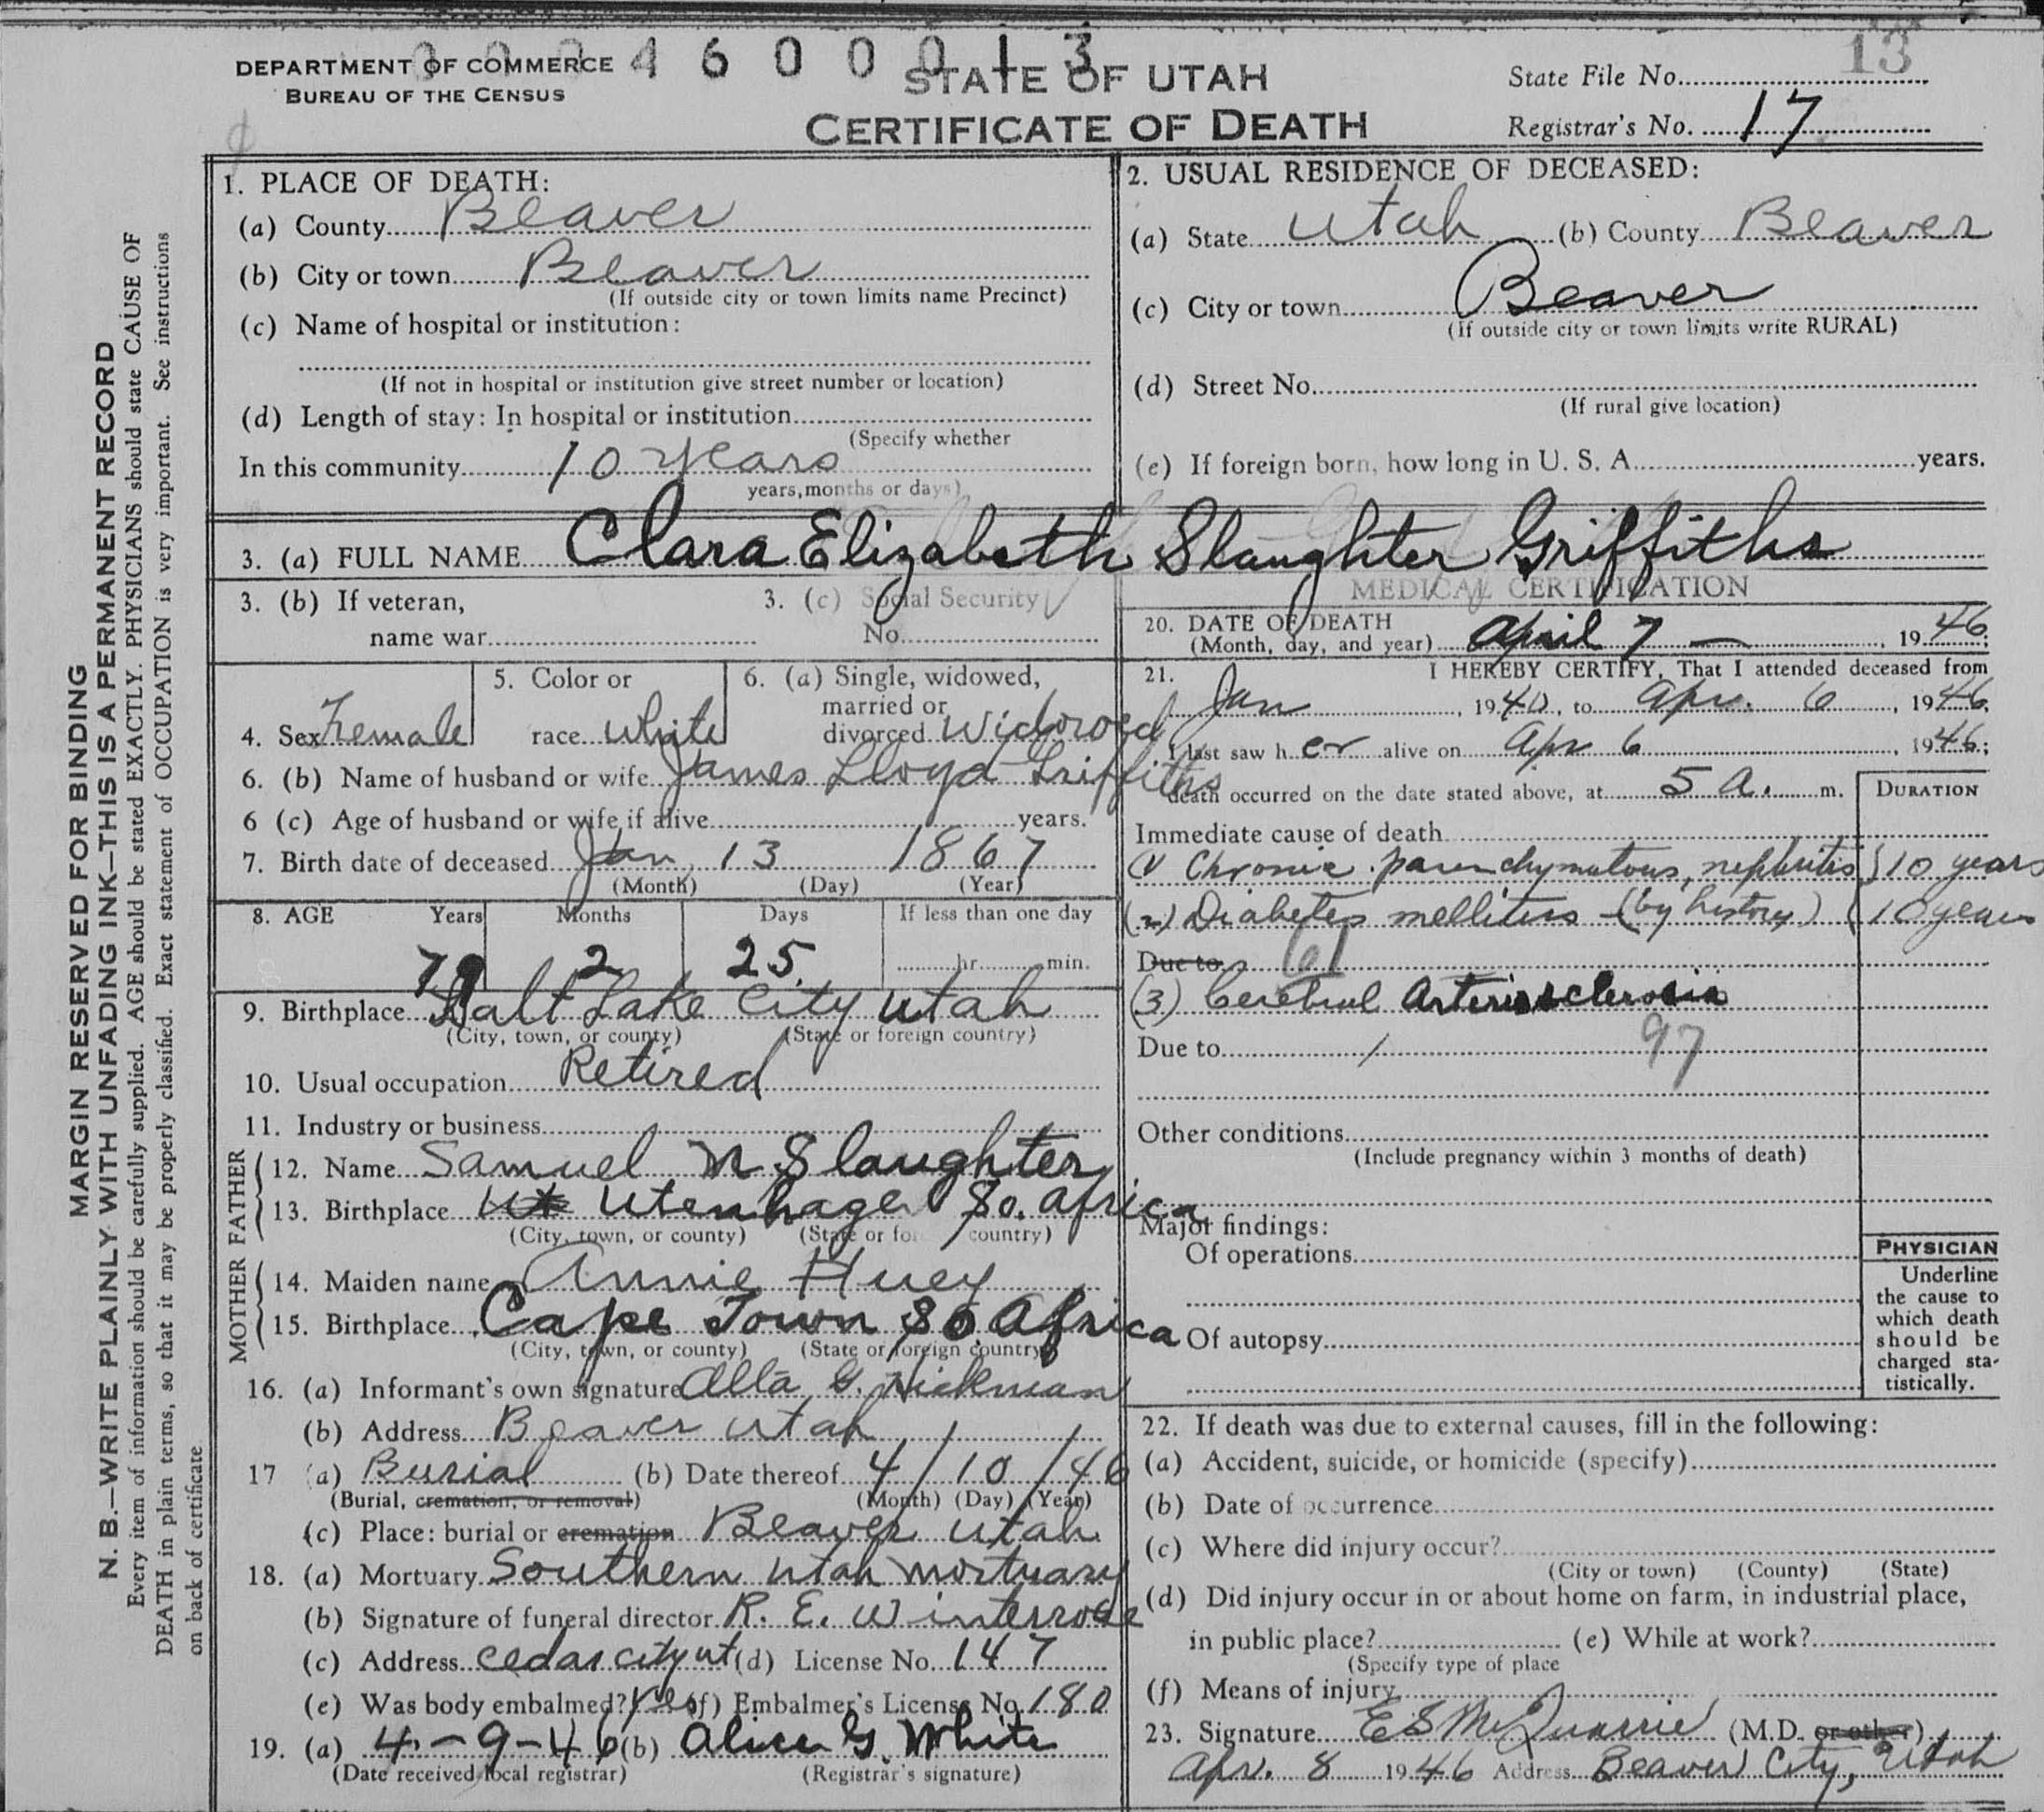 0 0 0 4 6 0 0 0 1 3
13
DEPARTMENT OF COMMERCE
BUREAU OF THE CENSUS
STATE OF UTAH
CERTIFICATE OF DEATH
State File No.
Registrar's No. 17
MARGIN RESERVED FOR BINDING
N. B.—WRITE PLAINLY WITH UNFADING INK—THIS IS A PERMANENT RECORD
Every item of information should be carefully supplied. AGE should be stated EXACTLY. PHYSICIANS should state CAUSE OF
DEATH in plain terms, so that it may be properly classified. Exact statement of OCCUPATION is very important. See instructions
on back of certificate
1. PLACE OF DEATH:
(a) County Beaver
(b) City or town Beaver
(If outside city or town limits name Precinct)
(c) Name of hospital or institution:
(If not in hospital or institution give street number or location)
(d) Length of stay: In hospital or institution
(Specify whether
In this community 10 years
years, months or days)
2. USUAL RESIDENCE OF DECEASED:
(a) State Utah (b) County Beaver
(c) City or town Beaver
(If outside city or town limits write RURAL)
(d) Street No.
(If rural give location)
(e) If foreign born, how long in U. S. A. years.
3. (a) FULL NAME Clara Elizabeth Slaughter Griffiths
3. (b) If veteran,
name war
3. (c) Social Security
No.
4. Sex Female
5. Color or
race white
6. (a) Single, widowed,
married or
divorced Widowed
6. (b) Name of husband or wife James Lloyd Griffiths
6 (c) Age of husband or wife if alive years.
7. Birth date of deceased Jan 13 1867
(Month) (Day) (Year)
8. AGE Years Months Days If less than one day
79 2 25 hr. min.
9. Birthplace Salt Lake City Utah
(City, town, or county) (State or foreign country)
10. Usual occupation Retired
11. Industry or business
FATHER
12. Name Samuel N Slaughter
13. Birthplace Ut Utenhage So. Africa
(City, town, or county) (State or fo country)
MOTHER
14. Maiden name Annie Huey
15. Birthplace Cape Town So. Africa
(City, town, or county) (State or foreign country)
16. (a) Informant's own signature Alta G. Hickman
(b) Address Beaver Utah
17 (a) Burial (b) Date thereof 4/10/46
(Burial, cremation, or removal) (Month) (Day) (Year)
(c) Place: burial or cremation Beaver Utah
18. (a) Mortuary Southern Utah Mortuary
(b) Signature of funeral director R. E. Winterrose
(c) Address Cedar City ut (d) License No. 147
(e) Was body embalmed? Yes (f) Embalmer's License No. 180
19. (a) 4-9-46 (b) Alice G. White
(Date received local registrar) (Registrar's signature)
MEDICAL CERTIFICATION
20. DATE OF DEATH
(Month, day, and year) April 7 — , 1946
21. I HEREBY CERTIFY, That I attended deceased from
Jan , 1940, to Apr. 6 , 1946,
I last saw her alive on Apr 6 , 1946;
death occurred on the date stated above, at 5 a. m.
DURATION
Immediate cause of death
(1) Chronic parenchymatous, nephritis } 10 years
(2) Diabetes mellitus (by history) ( 10 years
Due to 61
(3) Cerebral Arteriosclerosis
Due to 97
Other conditions
(Include pregnancy within 3 months of death)
Major findings:
Of operations
Of autopsy
PHYSICIAN
Underline
the cause to
which death
should be
charged sta-
tistically.
22. If death was due to external causes, fill in the following:
(a) Accident, suicide, or homicide (specify)
(b) Date of occurrence
(c) Where did injury occur?
(City or town) (County) (State)
(d) Did injury occur in or about home on farm, in industrial place,
in public place? (e) While at work?
(Specify type of place
(f) Means of injury
23. Signature E S McQuarrie (M.D. or other)
Apr. 8 1946 Address Beaver City, Utah